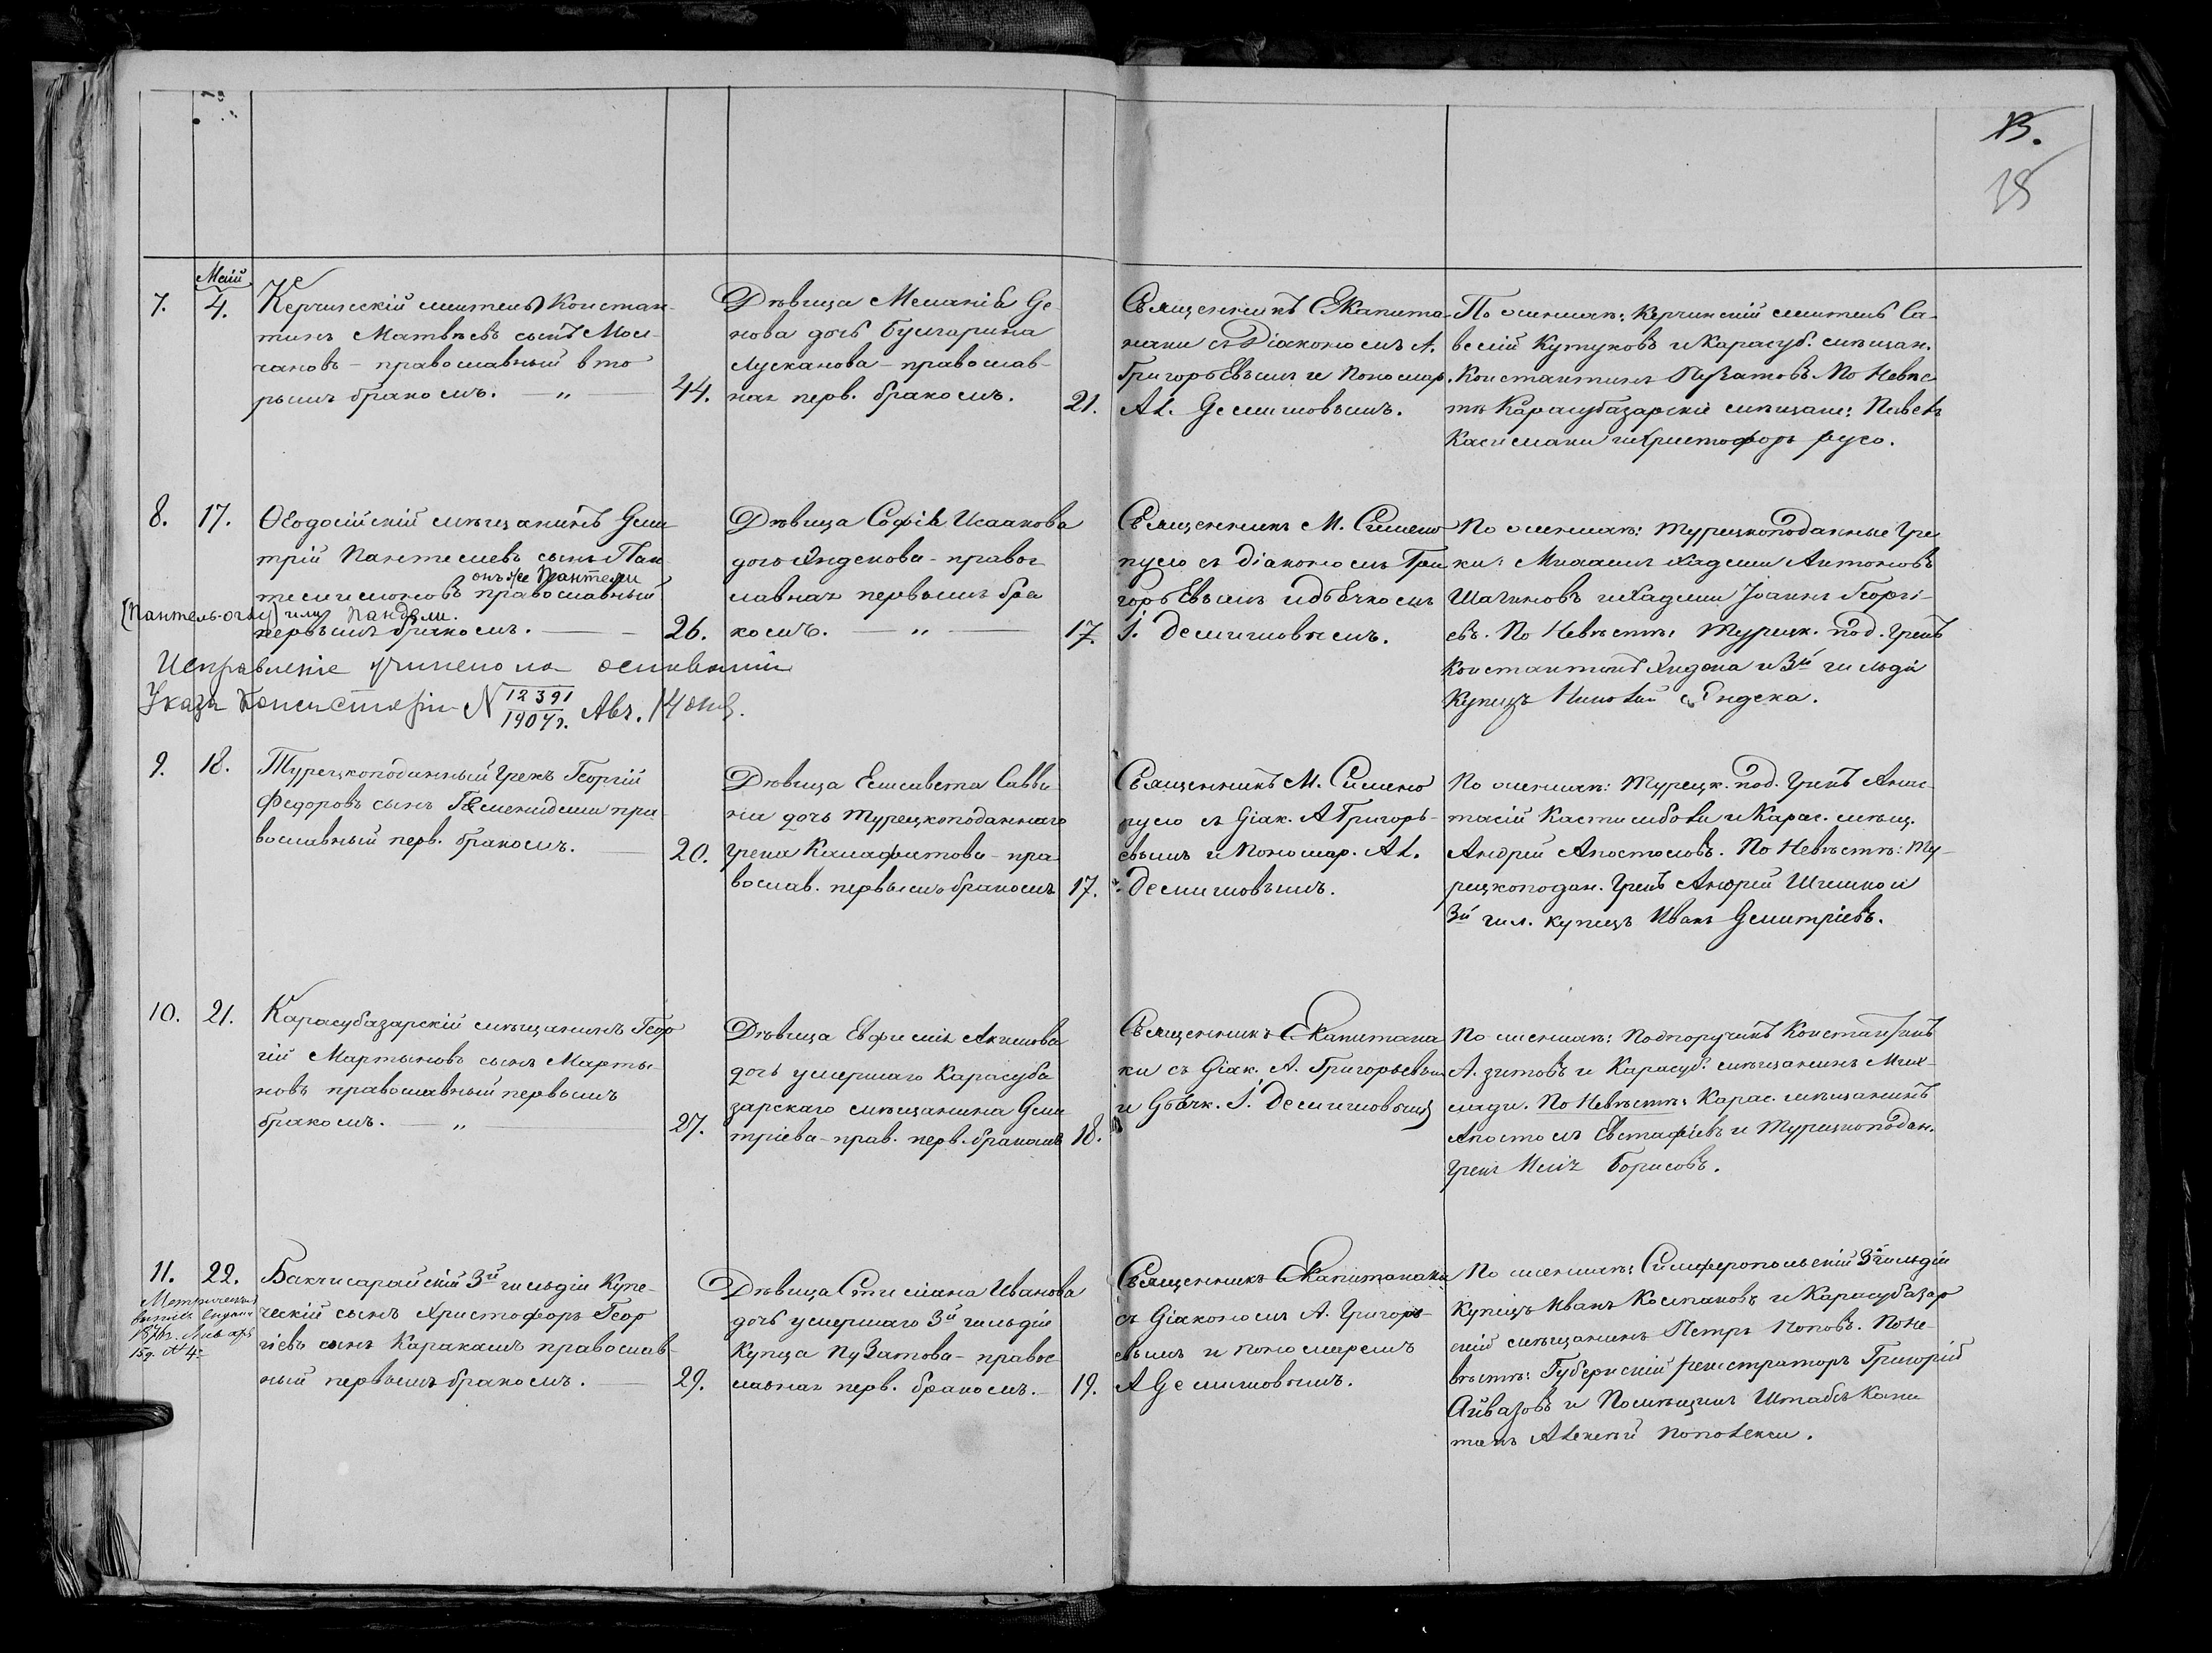 13.
Май
7.
4.
Керчинскій житель Констан-
тинъ Матвѣевъ сынъ Мол-
чановъ - православный вто
рымъ бракомъ. — „ —
44.
Дѣвица Меланія Де-
нова дочь булгарина
Лусканова - православ-
ная перв. бракомъ.
21.
Священникъ Е Капита-
наки съ Діакономъ А.
Григорьевымъ и Пономар.
Ал. Демишовымъ.
По женихѣ: Керчинскій житель Са-
велій Кутуковъ и Карасуб. мѣщан.
Константинъ Пузатовъ. По Невѣс
тѣ Карасубазарскіе мѣщане: Павелъ
Касимаки и Христофоръ Русо.
8.
17.
Ѳеодосійскій мѣщанинъ Дми
трій Пантелеевъ сынъ Пан
онъ же Пантели
телимоновъ православный
(Пантель-оглу) или Пандели.
первымъ бракомъ. —
26.
Исправленіе учинено на основаніи
Указа Консисторіи N 12391
1907г. Авг. 14 дня.
Дѣвица Софія Исаакова
дочь Яндекова - правос
лавная первымъ бра
комъ. — „ —
17.
Священникъ М. Симено
пуло съ діакономъ Гри
горьевымъ и дьячкомъ
І. Демишовымъ.
По женихѣ: турецкоподанные Гре
ки: Михаилъ Хаджи Антоновъ
Шагиновъ и Хаджи Іоаннъ Георгі-
евъ. По Невѣстѣ: Турецк. под. Грекъ
Константинъ Яндека и 3й гильдіи
Купецъ Николай Яндека.
9.
18.
Турецкоподанный Грекъ Георгій
Федоровъ сынъ пра
вославный перв. бракомъ. —
20.
Дѣвица Елисавета Савви-
на дочь турецкоподаннаго
Грека Калафатова - пра
вослав. первымъ бракомъ
17.
Священникъ М. Симено
пуло съ Діак. А Григорь-
евымъ и Пономар. Ал.
Демишовымъ.
По женихѣ: Турецк. под. Грекъ Анас-
тасій и Карас. мѣщ.
Андрей Апостоловъ. По Невѣстѣ: Ту-
рецкоподан. Грекъ Андрей Шишко и
3й гил. купецъ Иванъ Дмитріевъ.
10.
21.
Карасубазарскій мѣщанинъ Геор
гій Мартыновъ сынъ Марты-
новъ православный первымъ
бракомъ. — „ —
27.
Дѣвица Евфимія Акимова
дочь умершаго Карасуба
зарскаго мѣщанина Дми
тріева - прав. перв. бракомъ
18.
Священникъ Е Капитана
ки съ Діак. А. Григорьевымъ
и Дьячк. І. Демишовымъ
По женихѣ: Подпоручикъ Константинъ
А. зитовъ и Карасуб. мѣщанинъ Мих-
По Невѣстѣ: Карас. мѣщанинъ
Апостолъ Евстафіевъ и Турецкоподан.
Грекъ Илія Борисовъ.
11.
22.
15 д. № 4
Бакчисарайскій 3й гильдіи Купе-
ческій сынъ Христофоръ Геор
гіевъ сынъ Каракашъ православ-
ный первымъ бракомъ. —
29.
Дѣвица Стиліана Иванова
дочь умершаго 3й гильдіи
Купца Пузатова - правос
лавная перв. бракомъ. —
19.
Священникъ Е Капитанаки
съ Діакономъ А. Григорь-
евымъ и пономаремъ
А Демишовымъ.
По женихѣ: Симферопольскій 3й гильдіи
Купецъ Иванъ Колпаковъ и Карасубазар
скій мѣщанинъ Петръ Поповъ. По Не-
вѣстѣ: Губернскій регистраторъ Григорій
Айвазовъ и Помѣщикъ Штабсъ Капи
танъ Алексѣй Поповъ